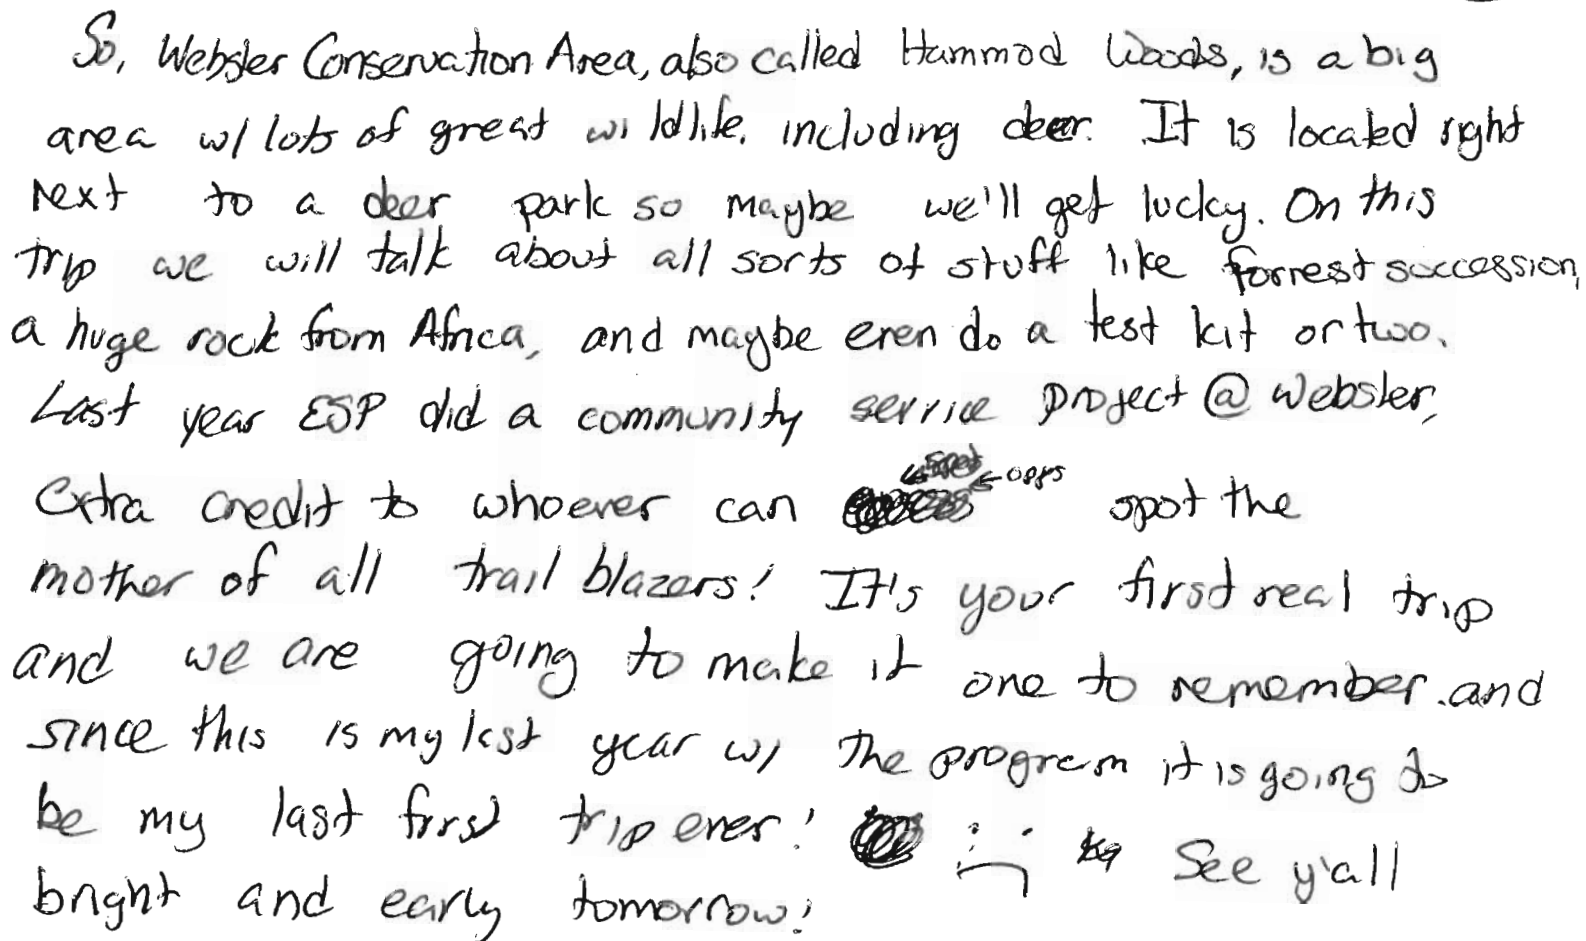 So, Webster Conservation Area, also called Hammod Woods, is a big
area w/ lots of great wildlife, including deer. It is located right
next to a deer park so maybe we'll get lucky. On this
trip we will talk about all sorts of stuff like forrest succession,
a huge rock from Africa, and maybe even do a test kit or two.
Last year ESP did a community service project @ Webster,
←oops
Extra credit to whoever can spot the
mother of all trail blazers! It's your first real trip
and we are going to make it one to remember. and
since this is my last year w/ the program it is going to
be my last first trip ever! :( See y'all
bright and early tomorrow!